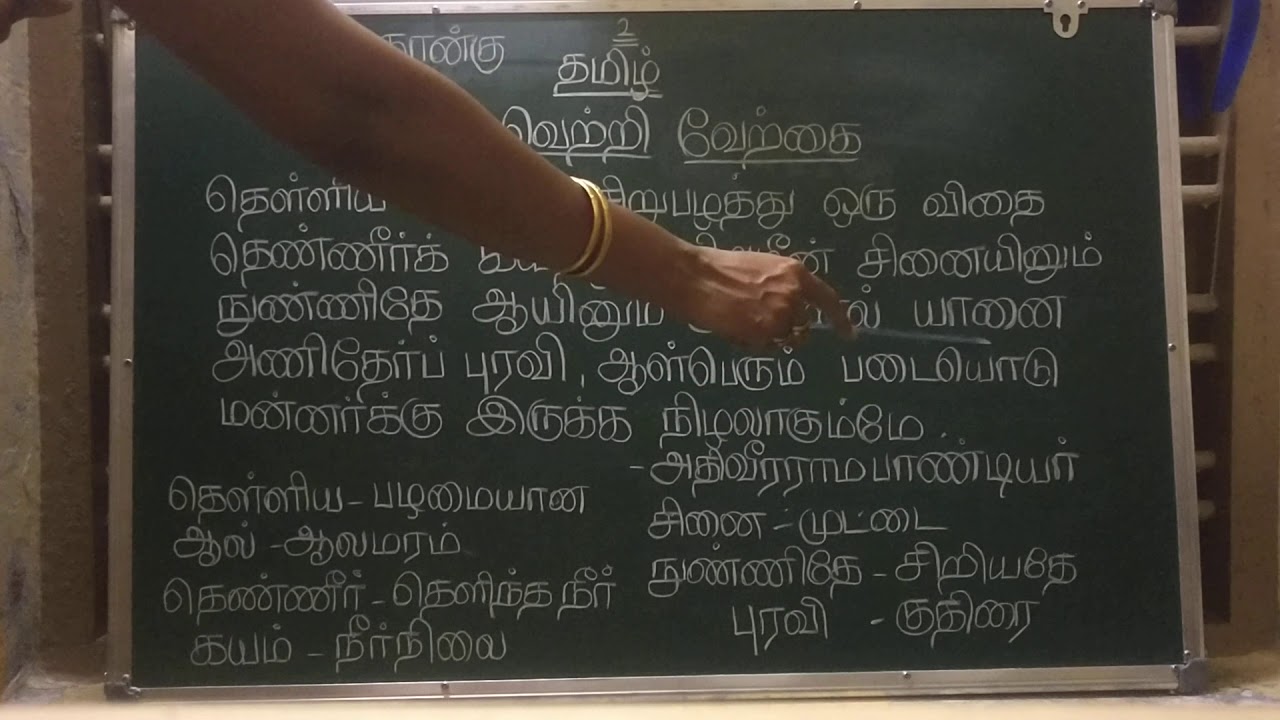 2
தமிழ்
வெற்றி வேற்கை
தெள்ளிய சிறுபழத்து ஒரு விதை
தெண்ணீர்க் சினையினும்
நுண்ணிதே ஆயினும் யானை
அணிதேர்ப் புரவி, ஆள்பெரும் படையொடு
மன்னர்க்கு இருக்க நிழலாகும்மே.
-அதிவீரராமபாண்டியர்
தெள்ளிய - பழமையான
ஆல் - ஆலமரம்
தெண்ணீர் - தெளிந்த நீர்
கயம் - நீர்நிலை
சினை - முட்டை
நுண்ணிதே - சிறியதே
புரவி - குதிரை